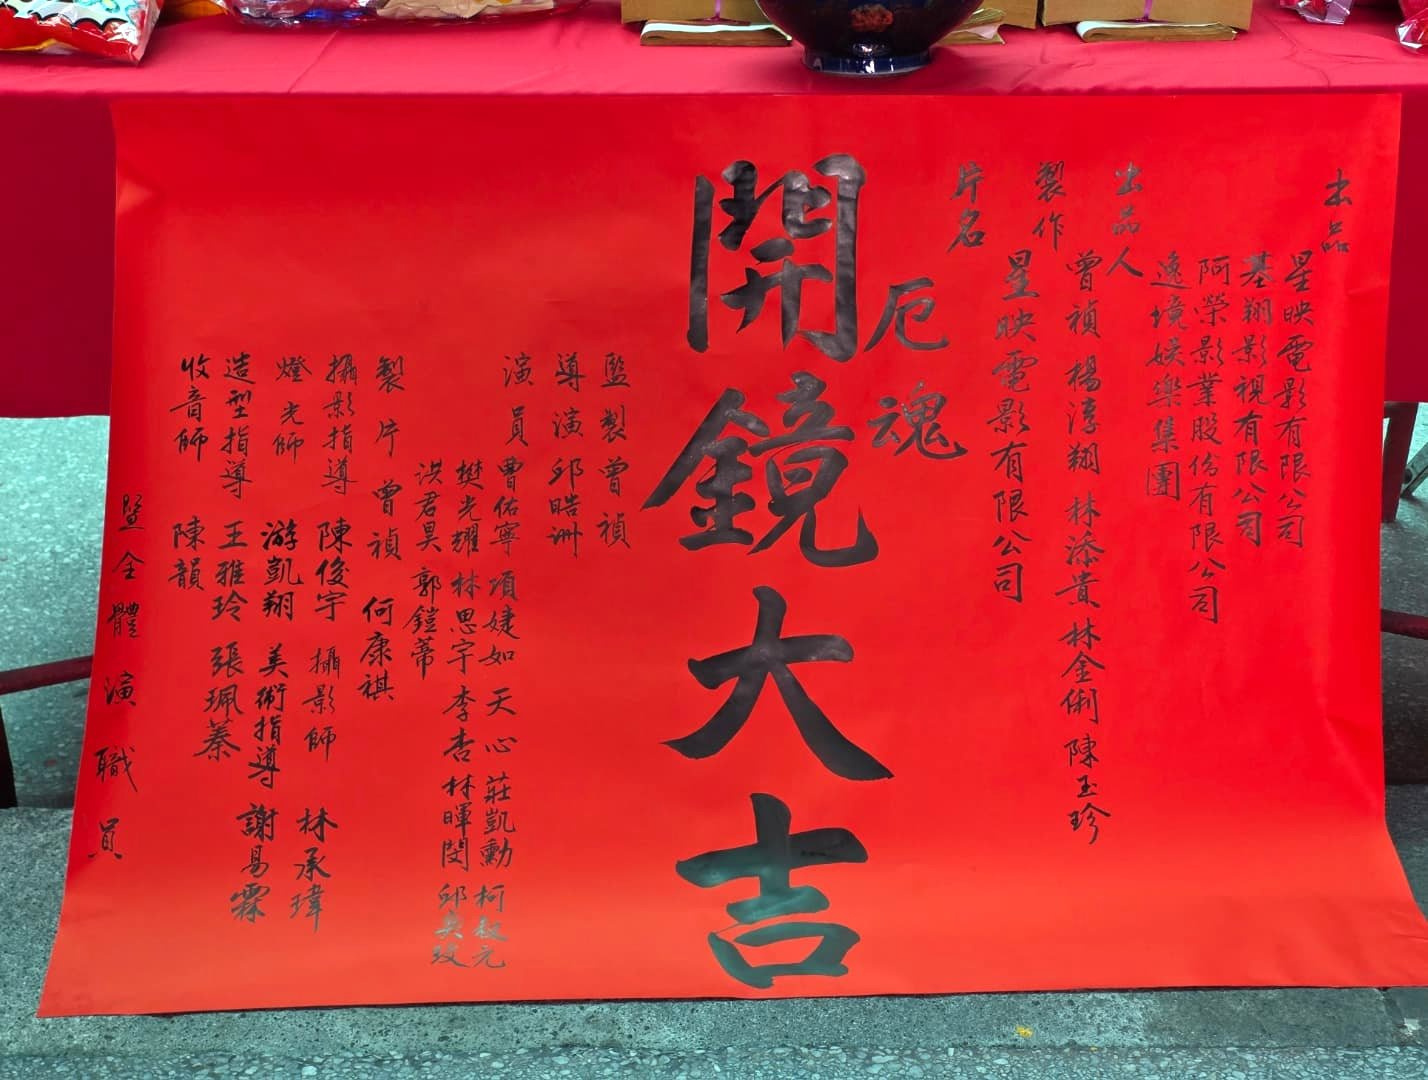 出品
星映電影有限公司
基翔影視有限公司
阿榮影業股份有限公司
逸境娛樂集團
出品人
曾禎 楊淳翔 林添貴 林金俐 陳玉珍
製作
星映電影有限公司
片名
厄魂
開鏡大吉
監製 曾禎
導演 邱晧洲
演員 曹佑寧 項婕如 天心 莊凱勳 柯叔元
樊光耀 林思宇 李杏 林暉閔 邱奕玟
洪君昊 郭鎧蒂
製片 曾禎 何康祺
攝影指導 陳俊宇 攝影師 林承瑋
燈光師 游凱翔 美術指導 謝昜霖
造型指導 王雅玲 張珮蓁
收音師 陳韻
暨全體演職員